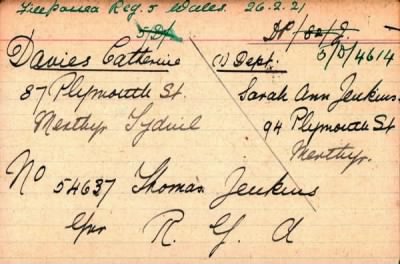 Reg. 5 Wales. 26.2.21
5/D/4614
Davies Catherine
87 Plymouth St.
Merthyr Tydvil
(1) Dept.
Sarah Ann Jenkins.
94 Plymouth St
Merthyr.
No 54637 Thomas Jenkins
Gnr R. G. A